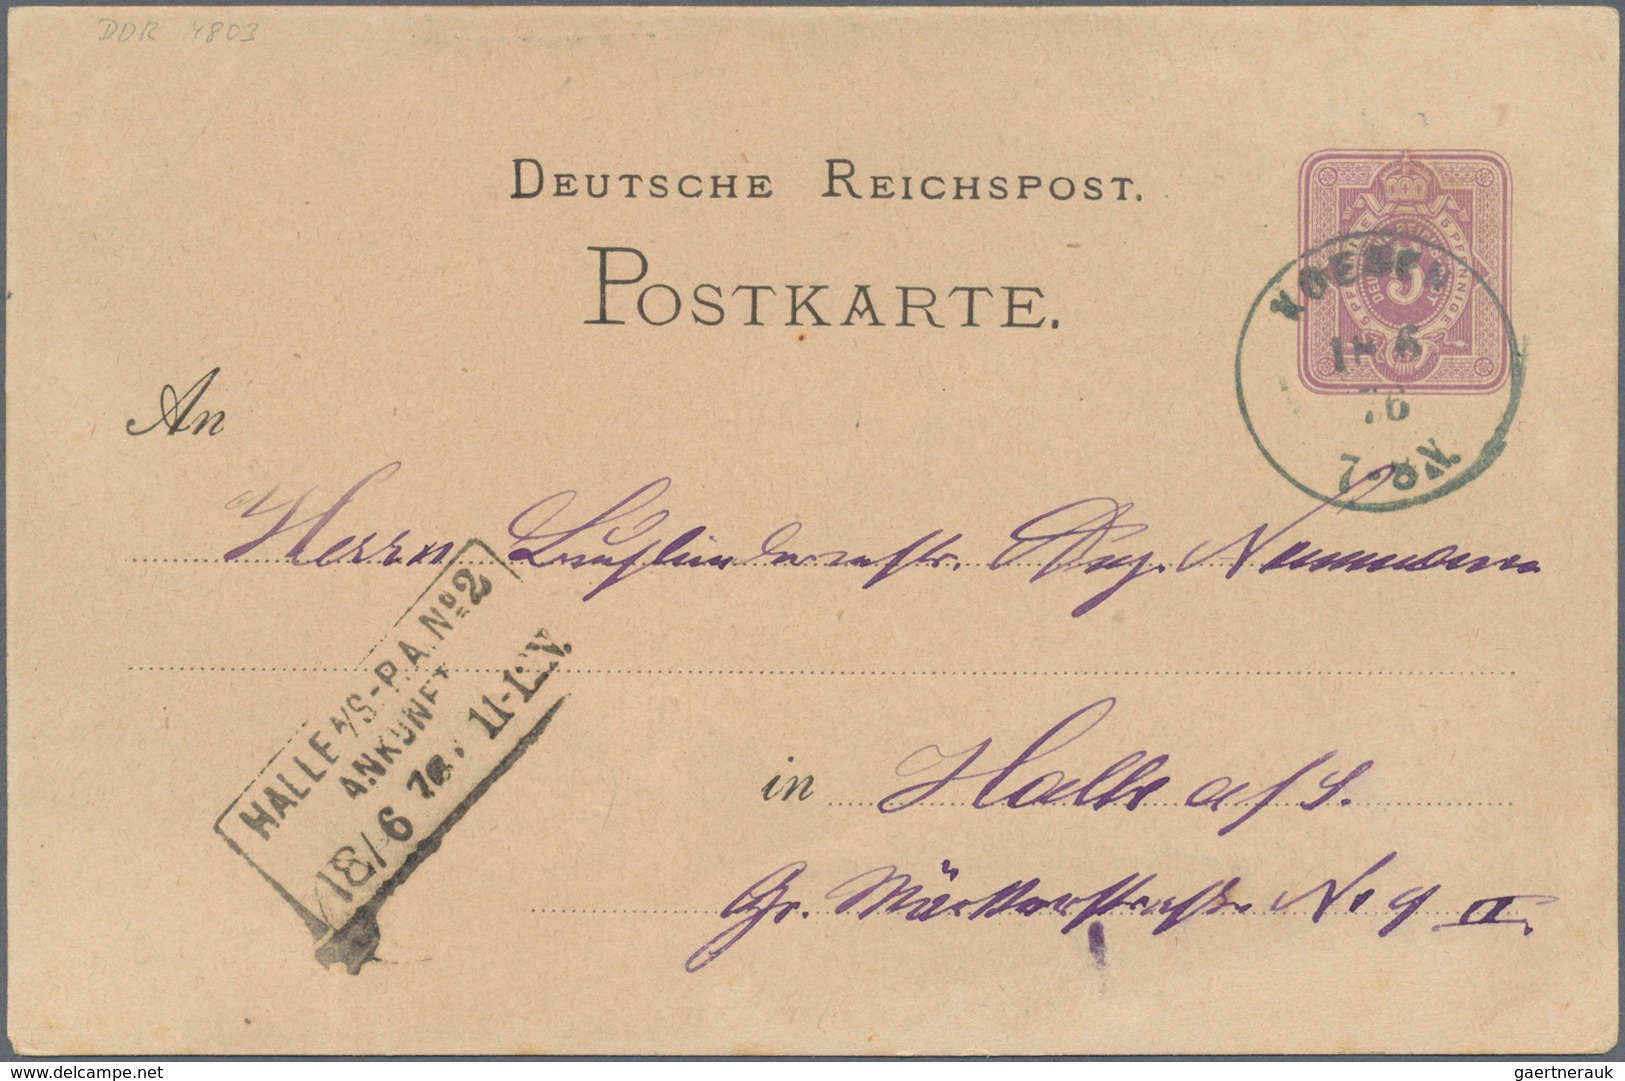 DDR 4803
DEUTSCHE REICHSPOST.
POSTKARTE.
5 PFENNIGE 5 PFENNIGE
DEUTSCHE REICHSPOST
5
KOESEN
18 6
76
7-8N.
An
Herrn Aug. Neumann
HALLE A/S-P.A. No 2
ANKUNFT
18/6 76. 11-12N.
in Halle a/S.
Gr. Märkerstraße No 9 II.
delcampe.net
gaertnerauk